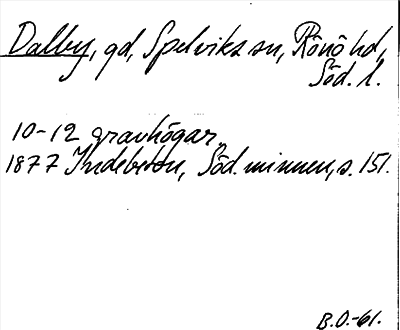 Dalby, gd, Spelviks sn, Rönö hd,
Söd. l.
10-12 gravhögar
1877 Indebetou, Söd. minnen, s. 151.
B.O.-61.